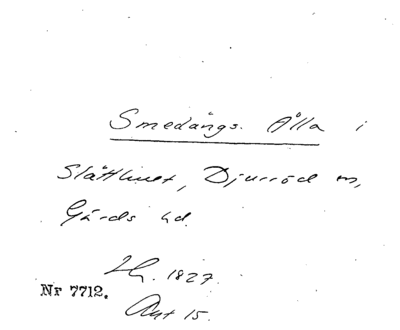 Smedängs Ålla i
Slättlunet, Djurröd sn,
Gärds hd.
1827.
Nr 7712.
Akt 15.